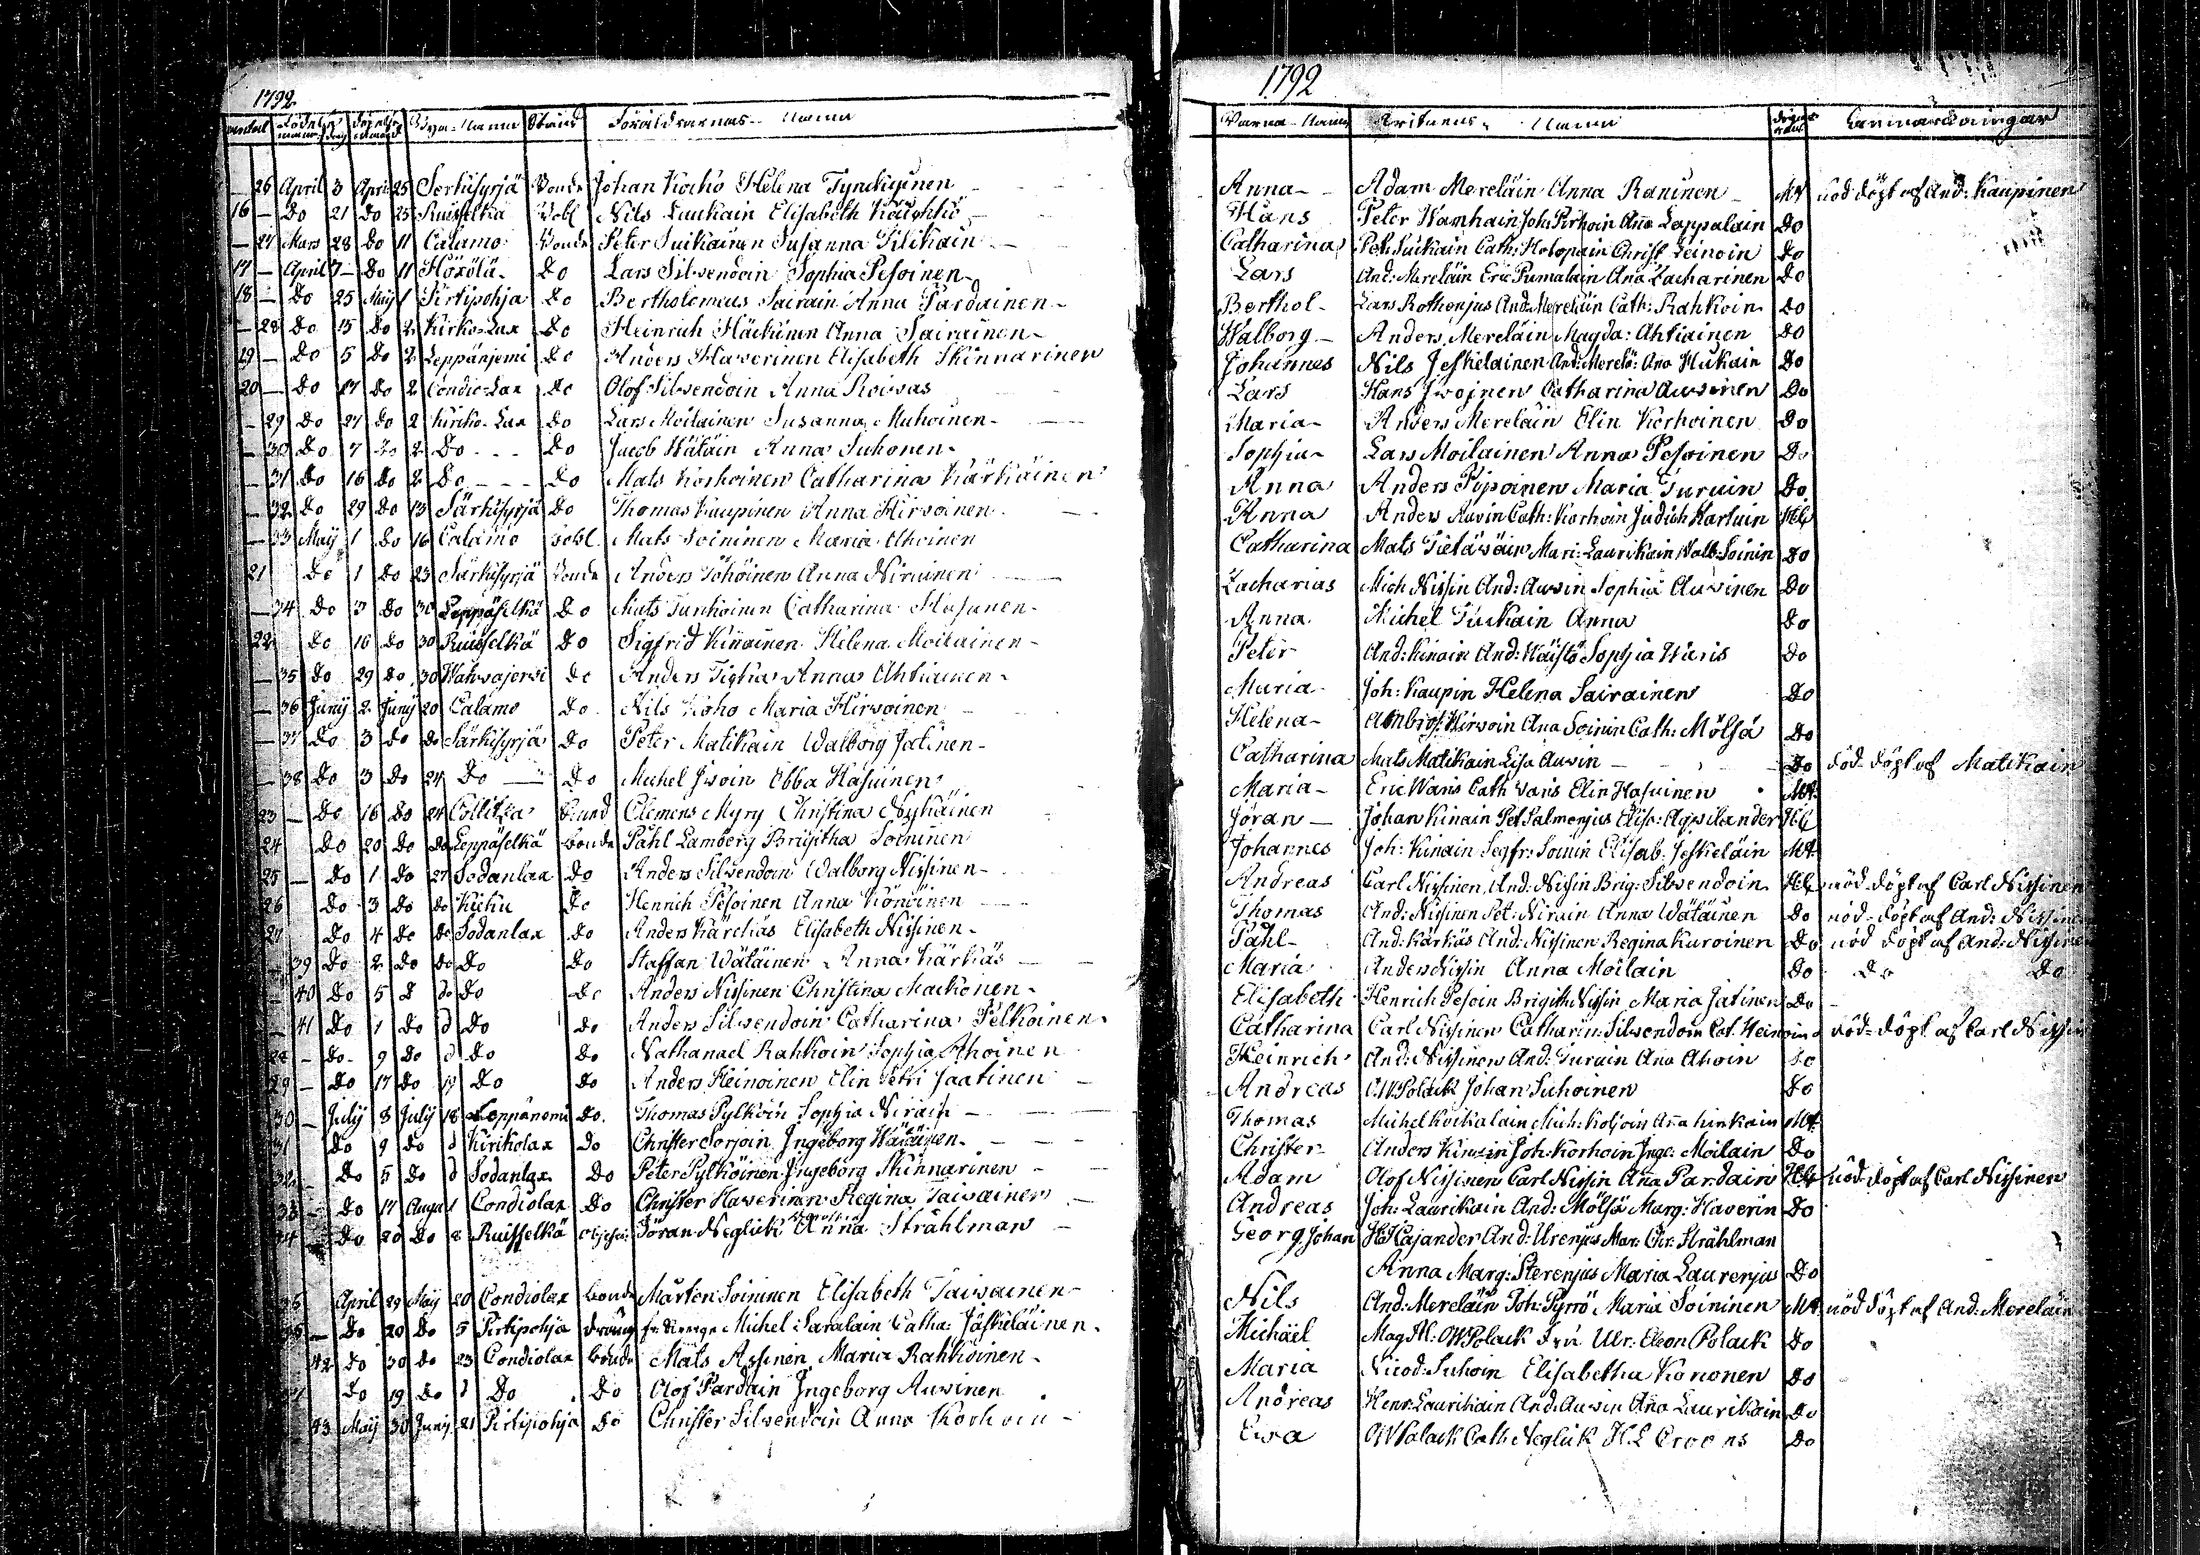 1792
Antal Födelse Dop Bya-Namn Stånd Föräldrarnas Namn
26 April 3 April 25 Serkisyrjä Bonde Johan Kocko Helena Tynckynen
16 Do 21 Do 25 Ruisselkä Nils Luukain Elisabeth
27 Mars 28 Do 11 Calamo Bonde Peter Suikainen Susanna Silikain
17 April 7 Do 11 Höxölä Do Lars Silvendoin Sophia Pesoinen
18 Do 25 Maÿ 1 Pirtipohja Do Bertholomeus Sairain Anna Pardainen
28 Do 15 Do 2 Kirko-Lax Do Heinrich Häckinen Anna Sairainen
19 Do 5 Do 2 Leppänjemi Do Anders Haverinen Elisabeth Skinnarinen
20 Do 17 Do 2 Condio-Lax Do Olof Silvendoin Anna Roivas
29 Do 27 Do 2 Kiriko-Lax Do Lars Moilainen Susanna Muhoinen
30 Do 7 Do 2 Do Do Jacob Wätäin Anna Suhonen
31 Do 16 Do 2 Do Do Mats Korhoinen Catharina Kärkäinen
32 Do 29 Do 13 Särkisyrjä Do Thomas Kaupinen Anna Hirvoinen
33 Maÿ 1 Do 16 Calamo Mats Soininen Maria Ahoinen
21 Do 1 Do 23 Särkisyrjä Bonde Anders Töhöinen Anna Niruinen
34 Do 3 Do 30 Leppäselkä Do Mats Turkoinen Catharina Hasunen
22 Do 16 Do 30 Ruisselkä Do Sigfrid Kinainen Helena Moilainen
35 Do 29 Do 30 Hatvajervi Do Anders Tigkia Anna Ahtiainen
36 Junÿ 2 Junÿ 20 Calamo Do Nils Koho Maria Hirvoinen
37 Do 3 Do do Särkisyrjä Do Peter Matikain Walborg Jatinen
38 Do 3 Do 24 Do Do Michel Ivoin Ebba Hasuinen
23 Do 16 Do 24 Collitka Clemens Myry Christina Nykäinen
24 Do 20 Do do Leppäselkä bonde Påhl Lamberg Brigitha Soininen
25 Do 1 Do 27 Sodanlax Do Anders Silvendoin Walborg Nissinen
26 Do 3 Do do Kiihu Do Henrich Pesoinen Anna Könöinen
27 Do 4 Do do Sodanlax Do Anders Kärckäs Elisabeth Nissinen
39 Do 2 Do do Do Do Staffan Wätäinen Anna Kärkäs
40 Do 5 D do Do Do Anders Nissinen Christina Mackonen
41 Do 1 Do d Do Do Anders Silvendoin Catharina Pelkoinen
28 Do 9 Do d Do Do Nathanael Rahkoin Sophia Ahoinen
29 Do 17 Do 17 Do Do Anders Heinoinen Elin Petri Jaatinen
30 Julÿ 8 Julÿ 18 Leppänemi Do Thomas Pylköin Sophia Nirain
31 Do 9 Do d Kirikolax Do Christer Sorjoin Ingeborg Wätäinen
32 Do 5 Do d Sodanlax Do Peter Pylköinen Ingeborg Skinnarinen
33 Do 17 Augu 1 Condiolax Do Christer Haverinen Regina Taivainen
34 Do 20 Do 8 Ruisselkä Jöran Neglick Anna Stråhlman
35 April 29 Maÿ 20 Condiolax bonde Mårten Soininen Elisabeth Taivainen
36 Do 20 Do 5 Pirtipohja dräng Michel Saralain Catha: Jäskeläinen
42 Do 30 Do 23 Condiolax bonde Mats Assinen Maria Rahkoinen
37 Do 19 Do d Do Do Olof Pardain Ingeborg Auvinen
43 Maÿ 30 Junÿ 21 Pirtipohja Do Christer Silvendoin Anna Korhoin
1792
Barna-Namn Kristnens Namn Anmärckningar
Anna Adam Mereläin Anna Raninen Mt nöd döpt af And: Kaupinen
Hans Peter Wamhain Joh: Pirhoin Ana Lappalain Do
Catharina Pet: Suikain Cath: Holopain Christ Leinoin Do
Lars And: Mereläin Eric Pumalain Ana Zacharinen Do
Berthol- Lars Rothenjus And: Mereläin Cath: Rahkoin Do
Walborg Anders Mereläin Magda: Ahtiainen Do
Johannes Nils Jeskelainen And: Merelä: Ana Hukain Do
Lars Hans Ivoinen Catharina Auvinen Do
Maria Anders Mereläin Elin Korhoinen Do
Sophia Lars Moilainen Anna Pesoinen Do
Anna Anders Piipoinen Maria Turuin Do
Anna Anders Auvin Cath: Korhoin Judith Hartuin Hb
Catharina Mats Tietäväin Mari: Laurikain Walb: Soinin Do
Zacharias Mich Nissin And: Auvin Sophia Auvinen Do
Anna Michel Tuckain Anna Do
Peter And: Kinain And: Wäistö Sophia Waris Do
Maria Joh: Kaupin Helena Sairainen Do
Helena Ambros: Hirvoin Ana Soinin Cath: Mölsä Do
Catharina Mats Matikain Lisa Auvin Do nöd-döpt af Matikain
Maria Eric Waris Cath Waris Elin Hasuinen Mt
Jöran Johan Kinain Pet Salmenjus Elisa: Agvilander Hb
Johannes Joh: Kinain Segfr: Soinin Elisab: Jeskeläin Mt
Andreas Carl Nissinen And: Nissin Brig: Silvendoin Hb nöd-döpt af Carl Nissinen
Thomas And: Nissinen Pet: Nirain Anna Wätäinen Do nöd-döpt af And: Nissinen
Påhl And: Kärkäs And: Nissinen Regina Kuroinen Do nöd döpt af And: Nissinen
Maria Anders Nissin Anna Moilain Do Do Do
Elisabeth Henrich Pesoin Brigith Nissin Maria Jatinen Do
Catharina Carl Nissinen Catharin: Silvendoin Cat. Heinoin Do nöd-döpt af Carl Nissin
Heinrich And: Nissinen And: Turuin Ana Ahoin Do
Andreas OW Polack Johan Suhoinen Do
Thomas Michel Kockalain Mich: Koljoin Ana Kinkain Mt
Christer Anders Kinain Joh: Korhoin Inge: Moilain Do
Adam Olof Nissinen Carl Nissin Ana Pardain Hb nöd döpt af Carl Nissinen
Andreas Joh: Laurikain And: Mölsä Marg: Haverin Do
Georg Johan H: Cajander And: Urenjus Mar: Chr: Stråhlman
Anna Marg: Sterenjus Maria Laurenjus Do
Nils And: Mereläin Joh: Pyrrö Maria Soininen Mt nöd döpt af And: Mereläin
Michäel Mag OW Polack Fru Ulr: Eleon Polack Do
Maria Nicod: Suhoin Elisabetha Kononen Do
Andreas Henr: Laurikain And: Auvin Ana Laurikain Do
Eva OW Polack Cath Neglick H.L Croons Do